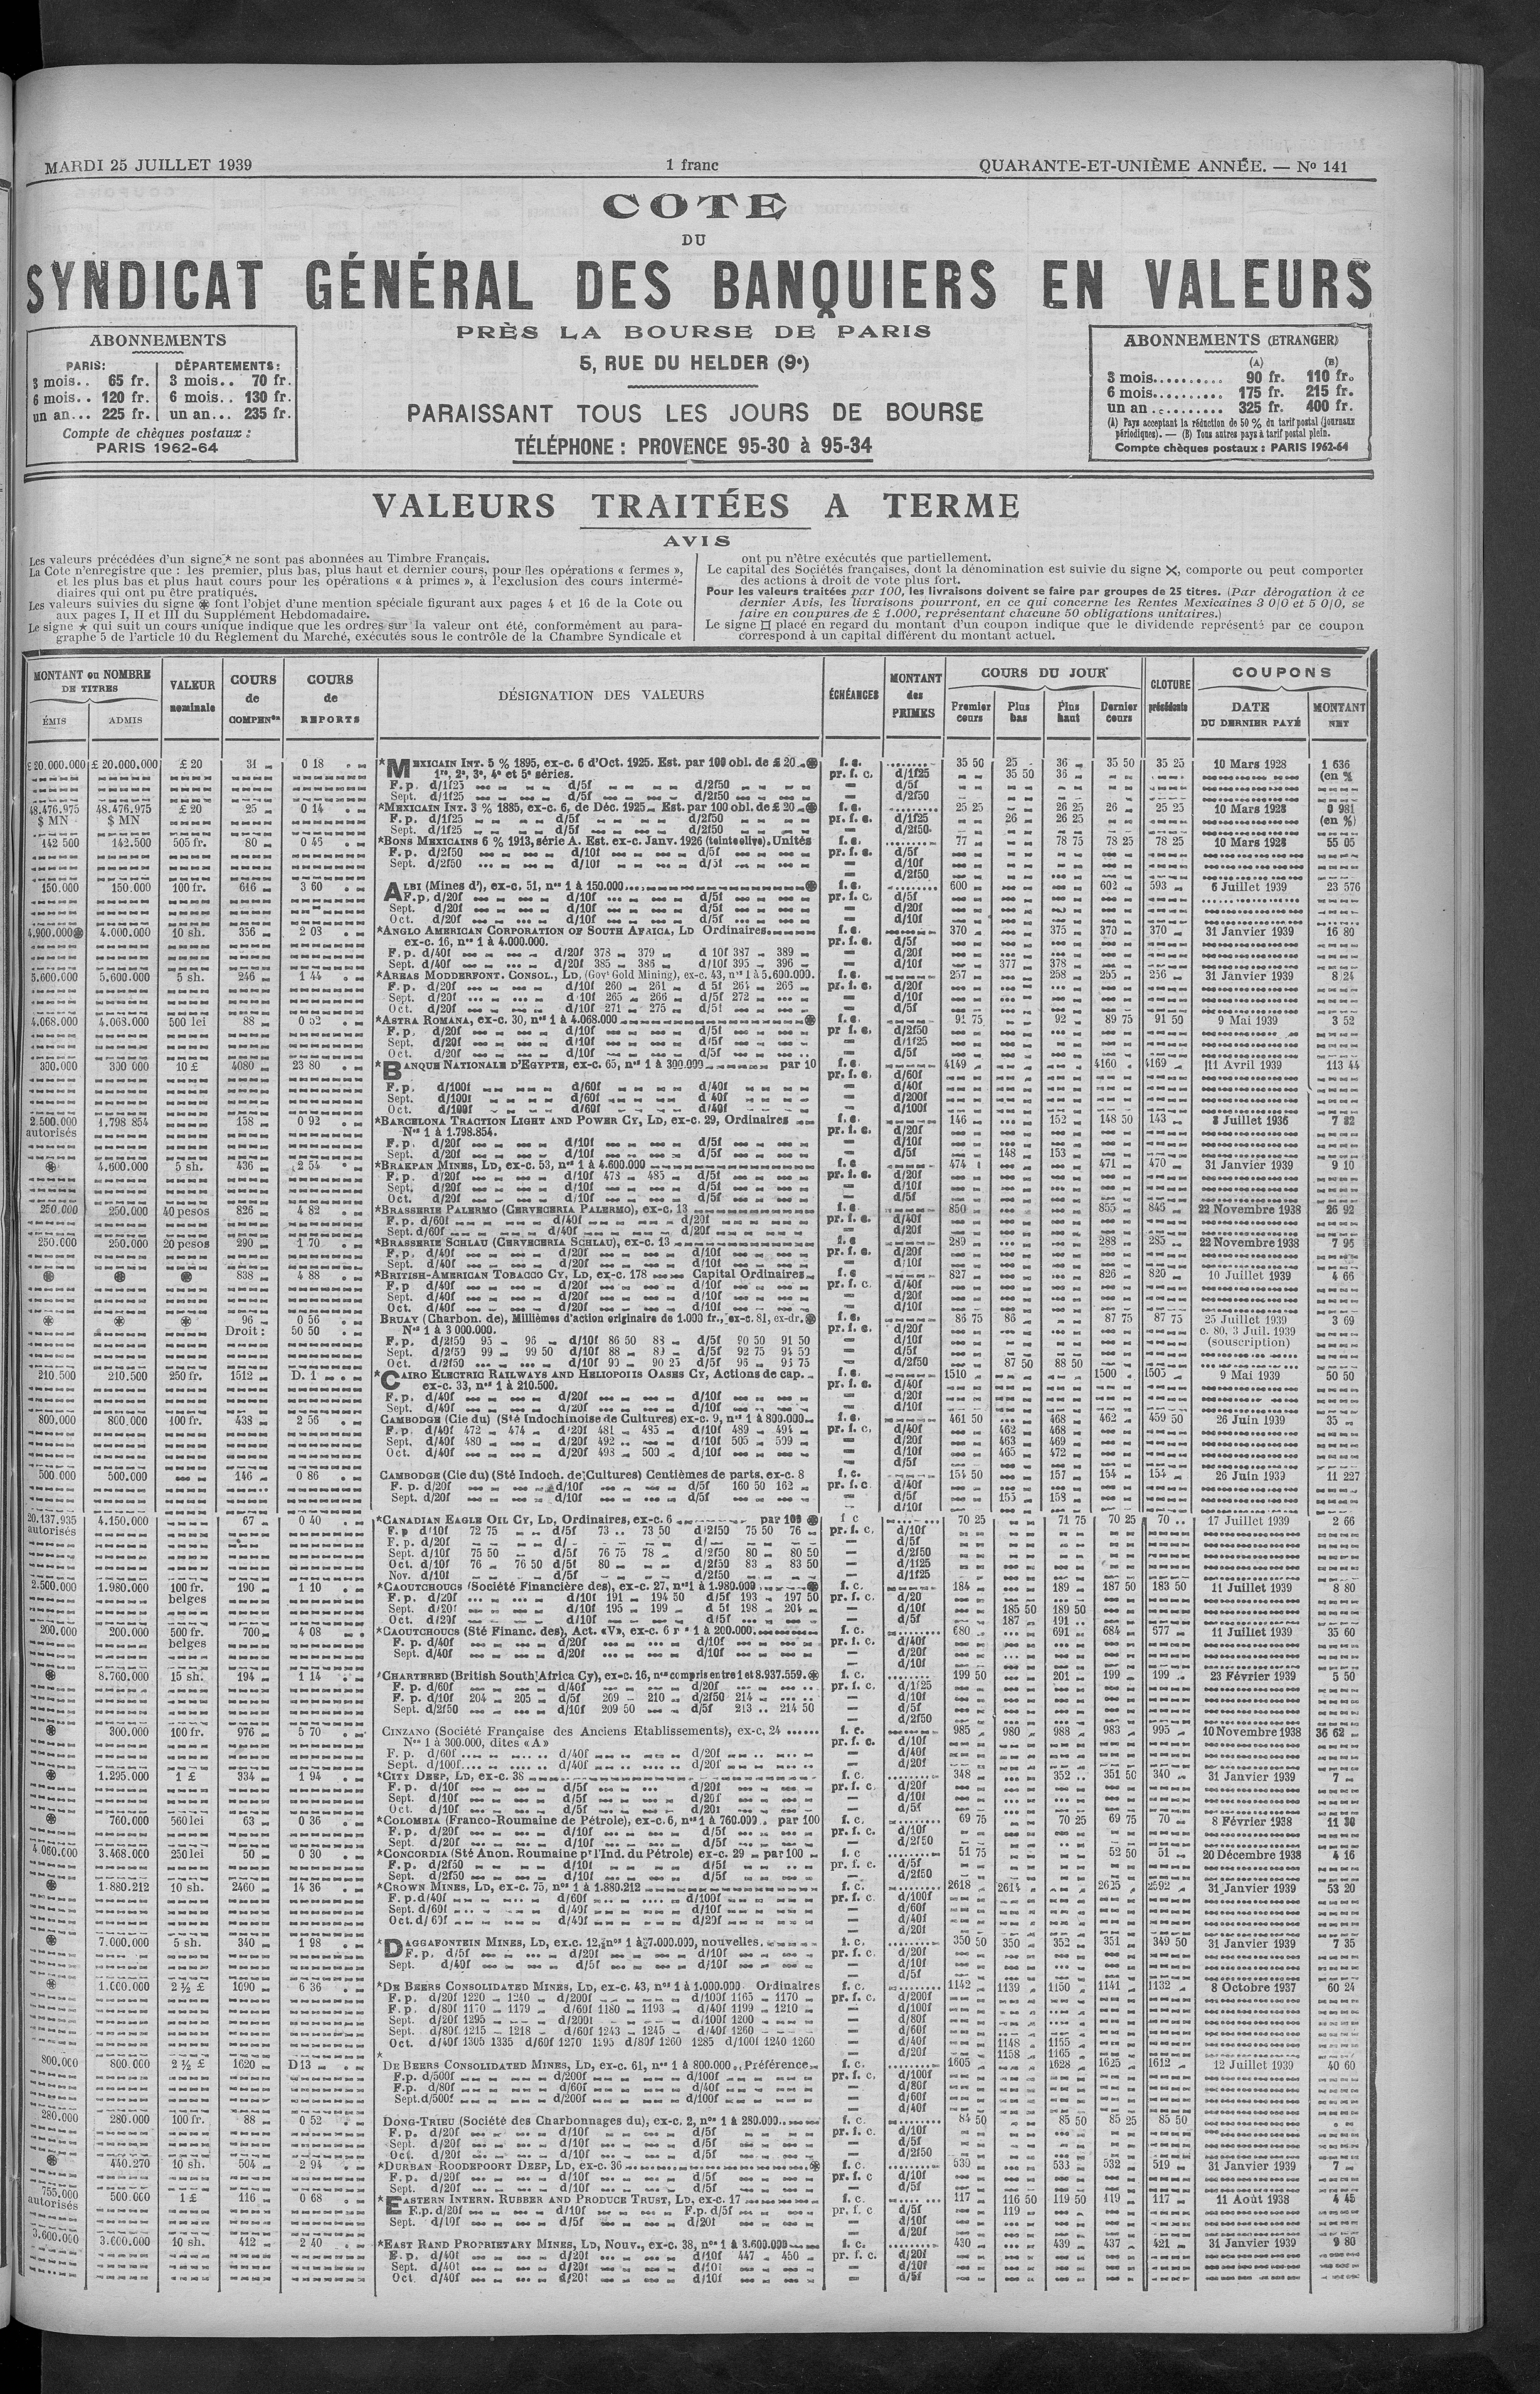 MARDI 25 JUILLET 1939 1 franc QUARANTE-ET-UNIÈME ANNÉE. — Nº 141
COTE
DU
SYNDICAT GÉNÉRAL DES BANQUIERS EN VALEURS
PRÈS LA BOURSE DE PARIS
5, RUE DU HELDER (9e)
PARAISSANT TOUS LES JOURS DE BOURSE
TÉLÉPHONE : PROVENCE 95-30 à 95-34
ABONNEMENTS
PARIS: DÉPARTEMENTS:
3 mois.. 65 fr. 3 mois.. 70 fr.
6 mois.. 120 fr. 6 mois.. 130 fr.
un an... 225 fr. un an... 235 fr.
Compte de chèques postaux :
PARIS 1962-64
ABONNEMENTS (ETRANGER)
(A) (B)
3 mois.......... 90 fr. 110 fr.
6 mois.......... 175 fr. 215 fr.
un an .......... 325 fr. 400 fr.
(A) Pays acceptant la réduction de 50 % du tarif postal (journaux
périodiques). — (B) Tous autres pays à tarif postal plein.
Compte chèques postaux : PARIS 1962-64
VALEURS TRAITÉES A TERME
AVIS
Les valeurs précédées d'un signe * ne sont pas abonnées au Timbre Français.
La Cote n'enregistre que : les premier, plus bas, plus haut et dernier cours, pour les opérations « fermes »,
et les plus bas et plus haut cours pour les opérations « à primes », à l'exclusion des cours intermé-
diaires qui ont pu être pratiqués.
Les valeurs suivies du signe ⊛ font l'objet d'une mention spéciale figurant aux pages 4 et 16 de la Cote ou
aux pages I, II et III du Supplément Hebdomadaire.
Le signe ★ qui suit un cours unique indique que les ordres sur la valeur ont été, conformément au para-
graphe 5 de l'article 10 du Règlement du Marché, exécutés sous le contrôle de la Chambre Syndicale et
ont pu n'être exécutés que partiellement.
Le capital des Sociétés françaises, dont la dénomination est suivie du signe ✕, comporte ou peut comporter
des actions à droit de vote plus fort.
Pour les valeurs traitées par 100, les livraisons doivent se faire par groupes de 25 titres. (Par dérogation à ce
dernier Avis, les livraisons pourront, en ce qui concerne les Rentes Mexicaines 3 0/0 et 5 0/0, se
faire en coupures de £ 1.000, représentant chacune 50 obligations unitaires.)
Le signe ¤ placé en regard du montant d'un coupon indique que le dividende représenté par ce coupon
correspond à un capital différent du montant actuel.
MONTANT ou NOMBRE DE TITRES
ÉMIS ADMIS
VALEUR nominale
COURS de COMPENon
COURS de REPORTS
DÉSIGNATION DES VALEURS
ÉCHÉANCES
MONTANT des PRIMES
COURS DU JOUR
Premier cours Plus bas Plus haut Dernier cours
CLOTURE précédente
COUPONS
DATE DU DERNIER PAYÉ MONTANT NET
£ 20.000.000 £ 20.000.000 £ 20 31 0 18 *MEXICAIN INT. 5 % 1895, ex-c. 6 d'Oct. 1925. Est. par 100 obl. de £ 20 ⊛ f. c. 35 50 25 36 35 50 35 25 10 Mars 1928 1 636
1re, 2e, 3e, 4e et 5e séries. pr. f. c. d/1f25 35 50 36 (en %
F. p. d/1f25 d/5f d/2f50 d/5f
Sept. d/1f25 d/5f d/2f50 d/2f50
48.476.975 48.476.975 £ 20 25 0 14 *MEXICAIN INT. 3 % 1885, ex-c. 6, de Déc. 1925 Est. par 100 obl. de £ 20 ⊛ f. c. 25 25 26 25 26 25 25 10 Mars 1928 0 981
$ MN $ MN F. p. d/1f25 d/5f d/2f50 pr. f. c. d/1f25 26 26 25 (en %)
Sept. d/1f25 d/5f d/2f50 d/2f50
142 500 142.500 505 fr. 80 0 45 *BONS MEXICAINS 6 % 1913, série A. Est. ex-c. Janv. 1926 (teinte olive). Unités f. c. 77 78 75 78 25 78 25 10 Mars 1928 55 05
F. p. d/2f50 d/10f d/5f pr. f. c. d/5f
Sept. d/2f50 d/10f d/5f d/10f
d/2f50
150.000 150.000 100 fr. 616 3 60 ALBI (Mines d'), ex-c. 51, nos 1 à 150.000 ⊛ f. c. 600 602 593 6 Juillet 1939 23 576
F. p. d/20f d/10f d/5f pr. f. c. d/5f
Sept. d/20f d/10f d/5f d/20f
Oct. d/20f d/10f d/5f d/10f
4.900.000⊛ 4.000.000 10 sh. 356 2 03 *ANGLO AMERICAN CORPORATION OF SOUTH AFRICA, LD Ordinaires f. c. 370 375 370 370 31 Janvier 1939 16 80
ex-c. 16, nos 1 à 4.000.000. pr. f. c. d/5f
F. p. d/40f d/20f 378 379 d 10f 387 389 d/20f
Sept. d/40f d/20f 385 386 d/10f 395 396 d/10f 377 378
5.600.000 5.600.000 5 sh. 246 1 44 *AREAS MODDERFONT. CONSOL., LD, (Govt Gold Mining), ex-c. 43, nos 1 à 5.600.000. f. c. 257 258 255 256 31 Janvier 1939 8 24
F. p. d/20f d/10f 260 261 d 5f 264 266 pr. f. c. d/20f
Sept. d/20f d 10f 265 266 d/5f 272 d/10f
Oct. d/20f d/10f 271 275 d/5f d/5f
4.068.000 4.068.000 500 lei 88 0 52 *ASTRA ROMANA, ex-c. 30, nos 1 à 4.068.000 ⊛ f. c. 91 75 92 89 75 91 50 9 Mai 1939 3 52
F. p. d/20f d/10f d/5f pr f. c. d/2f50
Sept. d/20f d/10f d/5f d/1f25
Oct. d/20f d/10f d/5f d/5f
300.000 300 000 10 £ 4080 23 80 *BANQUE NATIONALE D'EGYPTE, ex-c. 65, nos 1 à 300.000 par 10 f. c. 4149 4160 4169 11 Avril 1939 113 44
pr. f. c. d/60f
F. p. d/100f d/60f d/40f d/40f
Sept. d/100f d/60f d 40f d/200f
Oct. d/100f d/60f d/40f d/100f
2.500.000 1.798 854 158 0 92 *BARCELONA TRACTION LIGHT AND POWER CY, LD, ex-c. 29, Ordinaires f. c. 146 152 148 50 143 8 Juillet 1936 7 82
autorisés Nos 1 à 1.798.854. pr. f. c. d/20f
F. p. d/20f d/10f d/5f d/10f
Sept. d/20f d/10f d/5f d/5f 148 153
⊛ 4.600.000 5 sh. 436 2 54 *BRAKPAN MINES, LD, ex-c. 53, nos 1 à 4.600.000 f. c 474 471 470 31 Janvier 1939 9 10
F. p. d/20f d/10f 478 485 d/5f pr. f. c. d/20f
Sept. d/20f d/10f d/5f d/10f
Oct. d/20f d/10f d/5f d/5f
250.000 250.000 40 pesos 826 4 82 *BRASSERIE PALERMO (CERVECERIA PALERMO), ex-c. 13 f. c 850 855 845 22 Novembre 1938 26 92
F. p. d/60f d/40f d/20f pr. f. c. d/40f
Sept. d/60f d/40f d/20f d/20f
250.000 250.000 20 pesos 290 1 70 *BRASSERIE SCHLAU (CERVECERIA SCHLAU), ex-c. 13 f. c 289 288 285 22 Novembre 1938 7 95
F. p. d/40f d/20f d/10f pr. f. c. d/20f
Sept. d/40f d/20f d/10f d/10f
⊛ ⊛ ⊛ 838 4 88 *BRITISH-AMERICAN TOBACCO CY, LD, ex-c. 178 Capital Ordinaires f. c 827 826 820 10 Juillet 1939 4 66
F. p. d/40f d/20f d/10f pr. f. c. d/40f
Sept. d/40f d/20f d/10f d/20f
Oct. d/40f d/20f d/10f d/10f
⊛ ⊛ ⊛ 96 0 56 BRUAY (Charbon. de), Millièmes d'action originaire de 1.000 fr., ex-c. 81, ex-dr. ⊛ f. c. 86 75 86 87 75 87 75 25 Juillet 1939 3 69
Droit : 50 50 Nos 1 à 3 000.000. pr. f. c. d/20f c. 80, 3 Juil. 1939
F. p. d/2f50 95 96 d/10f 86 50 88 d/5f 90 50 91 50 d/10f (souscription)
Sept. d/2f50 99 99 50 d/10f 88 89 d/5f 92 75 94 50 d/5f
Oct. d/2f50 d/10f 90 90 25 d/5f 96 93 75 d/2f50 87 50 88 50
210.500 210.500 250 fr. 1512 D. 1 *CAIRO ELECTRIC RAILWAYS AND HELIOPOLIS OASES CY, Actions de cap. f. c. 1510 1500 1505 9 Mai 1939 50 50
ex-c. 33, nos 1 à 210.500. pr. f. c. d/40f
F. p. d/40f d/20f d/10f d/20f
Sept. d/40f d/20f d/10f d/10f
800.000 800.000 100 fr. 438 2 56 CAMBODGE (Cie du) (Sté Indochinoise de Cultures) ex-c. 9, nos 1 à 800.000 f. c. 461 50 468 462 459 50 26 Juin 1939 35
F. p. d/40f 472 474 d/20f 481 485 d/10f 489 494 pr. f. c, d/40f 462 468
Sept. d/40f 480 d/20f 492 d/10f 505 509 d/20f 463 469
Oct. d/40f d/20f 498 500 d/10f d/10f 465 472
d/5f
500.000 500.000 146 0 86 CAMBODGE (Cie du) (Sté Indoch. de Cultures) Centièmes de parts, ex-c. 8 f. c. 154 50 157 154 154 26 Juin 1939 11 227
F. p. d/20f d/10f d/5f 160 50 162 pr. f. c. d/40f
Sept. d/20f d/10f d/5f d/5f 155 158
d/10f
20.137.935 4.150.000 67 0 40 *CANADIAN EAGLE OIL CY, LD, Ordinaires, ex-c. 6 par 100 ⊛ f c 70 25 71 75 70 25 70 17 Juillet 1939 2 66
autorisés F. p d/10f 72 75 d/5f 73 73 50 d/2f50 75 50 76 pr. f. c. d/10f
F. p. d/20f d/ d/ d/5f
Sept. d/10f 75 50 d/5f 76 75 78 d/2f50 80 80 50 d/2f50
Oct. d/10f 76 76 50 d/5f 80 d/2f50 83 83 50 d/1f25
Nov. d/10f d/5f d/2f50 d/1f25
2.500.000 1.980.000 100 fr. 190 1 10 *CAOUTCHOUCS (Société Financière des), ex-c. 27, nos 1 à 1.980.000 ⊛ f. c. 184 189 187 50 183 50 11 Juillet 1939 8 80
belges F. p. d/20f d/10f 191 194 50 d/5f 193 197 50 pr. f. c. d/20
Sept. d/20f d/10f 195 199 d 5f 198 204 d/10f 185 50 189 50
Oct. d/20f d/10f d/5f d/5f 187 491
200.000 200.000 500 fr. 700 4 08 *CAOUTCHOUCS (Sté Financ. des), Act. «V», ex-c. 6 1 à 200.000. f. c. 680 691 684 677 11 Juillet 1939 35 60
belges F. p. d/40f d/20f d/10f pr. f. c. d/40f
Sept. d/40f d/20f d/10f d/20f
d/10f
⊛ 8.760.000 15 sh. 194 1 14 *CHARTERED (British South Africa Cy), ex-c. 16, nos compris entre 1 et 8.937.559. ⊛ f. c. 199 50 201 199 199 23 Février 1939 5 50
F. p. d/60f d/40f d/20f pr. f. c. d/1f25
F. p. d/10f 204 205 d/5f 209 210 d/2f50 214 d/10f
Sept. d/2f50 d/10f 209 50 d/5f 213 214 50 d/5f
d/2f50
⊛ 300.000 100 fr. 976 5 70 CINZANO (Société Française des Anciens Etablissements), ex-c, 24 f. c. 985 980 988 983 995 10 Novembre 1938 36 62
Nos 1 à 300.000, dites «A» pr. f. c. d/10f
F. p. d/60f d/40f d/20f d/40f
Sept. d/100f d/40f d/20f d/20f
⊛ 1.295.000 1 £ 334 1 94 *CITY DEEP, LD, ex-c. 38 f. c. 348 352 351 50 340 31 Janvier 1939 7
F. p. d/10f d/5f d/20f pr. f. c. d/20f
Sept. d/10f d/5f d/20f d/10f
Oct. d/10f d/5f d/20f d/5f
⊛ 760.000 560 lei 63 0 36 *COLOMBIA (Franco-Roumaine de Pétrole), ex-c. 6, nos 1 à 760.000 par 100 f. c. 69 75 70 25 69 75 70 8 Février 1938 11 30
F. p. d/20f d/10f d/5f pr. f. c. d/10f
Sept. d/20f d/10f d/5f d/2f50
4.060.000 3.468.000 250 lei 50 0 30 *CONCORDIA (Sté Anon. Roumaine pr l'Ind. du Pétrole) ex-c. 29 par 100 f. c 51 75 52 50 51 20 Décembre 1938 4 16
F. p. d/2f50 d/10f d/5f pr. f. c. d/5f
Sept. d/2f50 d/10f d/5f d/2f50
⊛ 1.880.212 10 sh. 2460 14 36 *CROWN MINES, LD, ex-c. 75, nos 1 à 1.880.212 f. c. 2618 2614 2625 2592 31 Janvier 1939 53 20
F. p. d/40f d/60f d/100f pr. f. c. d/100f
Sept. d/60f d/40f d/10f d/60f
Oct. d/60f d/40f d/20f d/40f
d/20f
⊛ 7.000.000 5 sh. 340 1 98 *DAGGAFONTEIN MINES, LD, ex.c. 12, nos 1 à 7.000.000, nouvelles. f. c. 350 50 350 352 351 349 50 31 Janvier 1939 7 35
F. p. d/5f d/20f d/10f pr. f. c. d/20f
Sept. d/40f d/5f d/10f d/10f
d/5f
⊛ 1.000.000 2 ½ £ 1090 6 36 *DE BEERS CONSOLIDATED MINES, LD, ex-c. 43, nos 1 à 1.000.000 Ordinaires f. c. 1142 1139 1150 1141 1132 8 Octobre 1937 60 24
F. p. d/20f 1220 1240 d/200f d/100f 1165 1170 pr. f. c. d/200f
F. p. d/80f 1170 1179 d/60f 1180 1193 d/40f 1199 1210 d/100f
Sept. d/20f 1295 d/200f d/100f 1200 d/80f
Sept. d/80f 1215 1218 d/60f 1243 1245 d/40f 1260 d/60f
Oct. d/40f 1305 1335 d/60f 1270 1295 d/80f 1260 1285 d/100f 1240 1260 d/40f 1148 1155
d/20f 1158 1165
800.000 800.000 2 ½ £ 1620 D 13 *DE BEERS CONSOLIDATED MINES, LD, ex-c. 61, nos 1 à 800.000. Préférence f. c. 1605 1628 1625 1612 12 Juillet 1939 40 60
F. p. d/500f d/200f d/100f pr. f. c. d/100f
F. p. d/80f d/60f d/40f d/80f
Sept. d/500f d/200f d/100f d/60f
d/40f
280.000 280.000 100 fr. 88 0 52 DONG-TRIEU (Société des Charbonnages du), ex-c. 2, nos 1 à 280.000 f. c. 84 50 85 50 85 25 85 50
F. p. d/20f d/10f d/5f pr. f. c. d/10f
Sept. d/20f d/10f d/5f d/5f
Oct. d/20f d/10f d/5f d/2f50
⊛ 440.270 10 sh. 504 2 94 *DURBAN ROODEPOORT DEEP, LD, ex-c. 36 ⊛ f. c. 530 533 532 519 31 Janvier 1939 7
F. p. d/20f d/10f d/5f pr. f. c d/10f
Sept. d/20f d/10f d/5f d/5f
755.000 500 000 1 £ 116 0 68 *EASTERN INTERN. RUBBER AND PRODUCE TRUST, LD, ex-c. 17 f. c. 117 116 50 119 50 119 117 11 Août 1938 4 45
autorisés F. p. d/20f d/10f F. p. d/5f pr. f. c d/5f 119
Sept. d/10f d/5f d/20f d/10f
d/20f
3.600.000 3.600.000 10 sh. 412 2 40 *EAST RAND PROPRIETARY MINES, LD, Nouv., ex-c. 38, nos 1 à 3.600.000 f. c. 430 439 437 421 31 Janvier 1939 9 80
F. p. d/40f d/20f d/10f 447 450 pr. f. c. d/20f
Sept. d/40f d/20f d/10f d/10f
Oct. d/40f d/20f d/10f d/5f